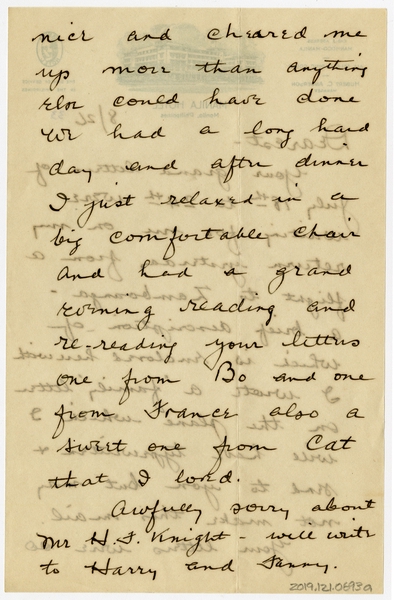 nice and cheared me
up more than anything
else could have done
We had a long hard
day and after dinner
I just relaxed in a
big comfortable chair
and had a grand
evening reading and
re-reading your letters
one from Bo and one
from France also a
sweet one from Cat
that I loved.
Awfully sorry about
Mr H. F. Knight - will write
to Harry and Fanny.
2019.121.0693a